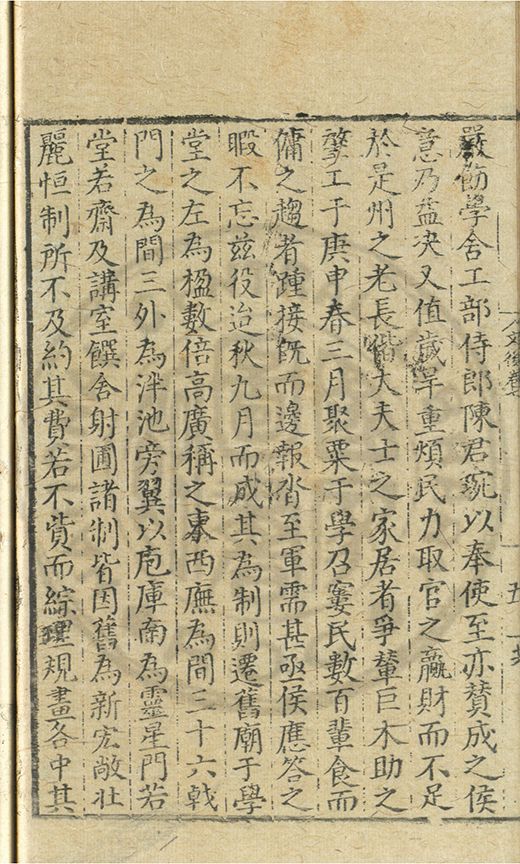 嚴飭學舍工部侍郎陳君琬以奉使至亦贊成之侯
意乃益決又值歲旱重煩民力取官之羸財而不足
於是州之老長偕大夫士之家居者爭輦巨木助之
擎工于庚申春三月聚粟于學召窶民數百輩食而
傭之趨者踵接旣而邊報沓至軍需甚亟侯應答之
暇不忘兹役迨秋九月而成其為制則遷舊廟于學
堂之左為楹數倍高廣稱之東西廡為間三十六戟
門之為間三外為泮池旁翼以庖庫南為靈星門若
堂若齋及講室饌舍射圃諸制皆因舊為新宏敞壯
麗恒制所不及約其費若不貲而綜理規畫各中其